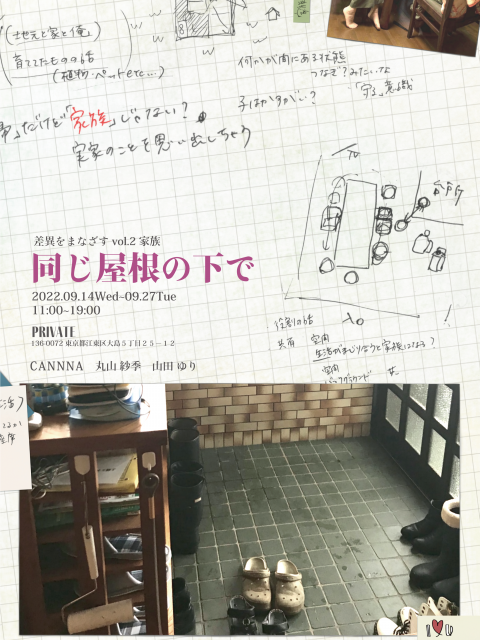 (地元と家と俺)
育ててたものの話
(植物・ペットetc…)
何かが間にある状態
つなぎ?みたいな
「守る」意識
子はかすがい?
だけど「家族」じゃない?
実家のことを思い出しちゃう
台所
差異をまなざす vol.2 家族
同じ屋根の下で
2022.09.14Wed-09.27Tue
11:00~19:00
PRIVATE
136-0072 東京都江東区大島5丁目25-1-2
CANNNA 丸山 紗季 山田 ゆり
役割の話
共有 空間
生活がまじり合うと家族になる?
空間
バックグラウンド